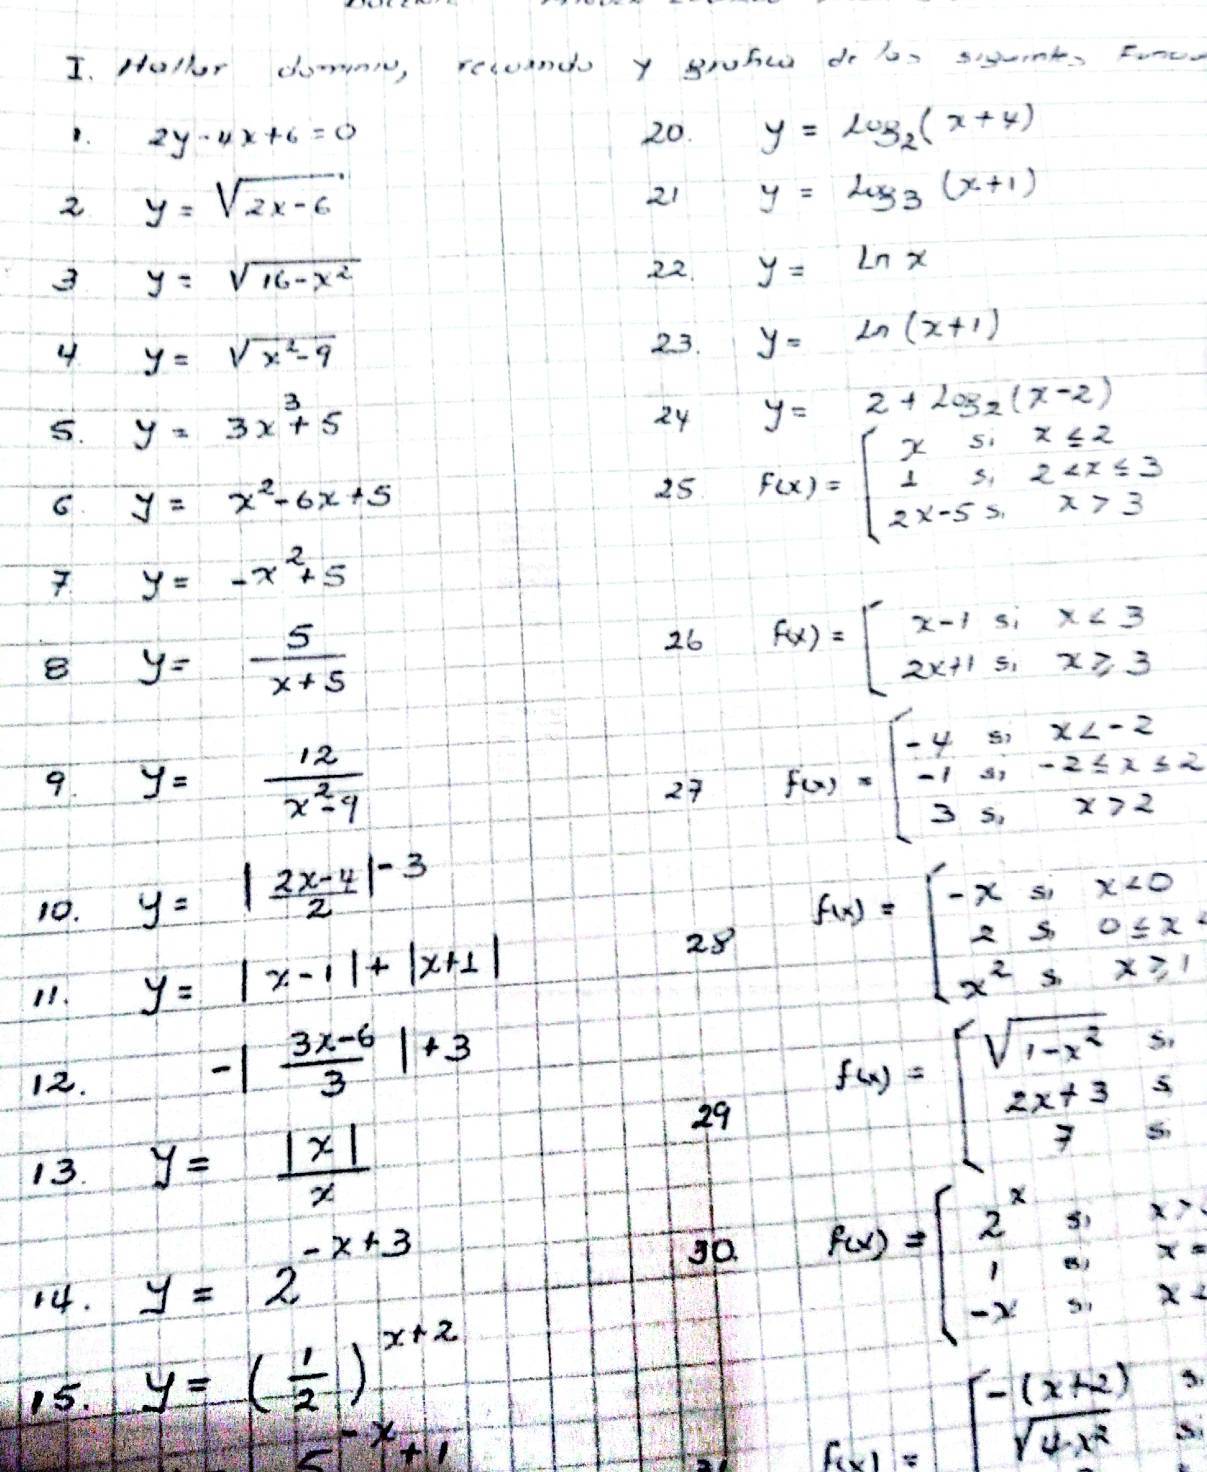 I. Hallar dominio, recorrido y grafica de las siguientes
1. 2y-4x+6=0
2 y = √2x-6
3 y = √16-x²
4 y = √x²-9
5. y = 3x³+5
6. y = x²-6x+5
7. y = -x²+5
8 y = 5/(x+5)
9. y = 12/(x²-9)
10. y = |(2x-4)/2|-3
11. y = |x-1|+|x+1|
12. -|(3x-6)/3|+3
13. y = |x|/x
14. y = 2^(-x+3)
15. y = (1/2)^(x+2)
5^(-x)+1
20. y = Log₂(x+4)
21 y = Log₃(x+1)
22. y = Ln x
23. y = Ln(x+1)
24 y = 2+Log₂(x-2)
25. f(x) = { x si x≤2
1 si 2<x≤3
2x-5 si x>3
26 f(x) = { x-1 si x<3
2x+1 si x≥3
27 f(x) = { -4 si x<-2
-1 si -2≤x≤2
3 si x>2
28 f(x) = { -x si x<0
2 si 0≤x<
x² si x≥1
29 f(x) = { √1-x² si
2x+3 si
7 si
30. f(x) = { 2^x si x>
1 si x=
-x si x<
f(x) = { -(x+2) si
√4-x² si